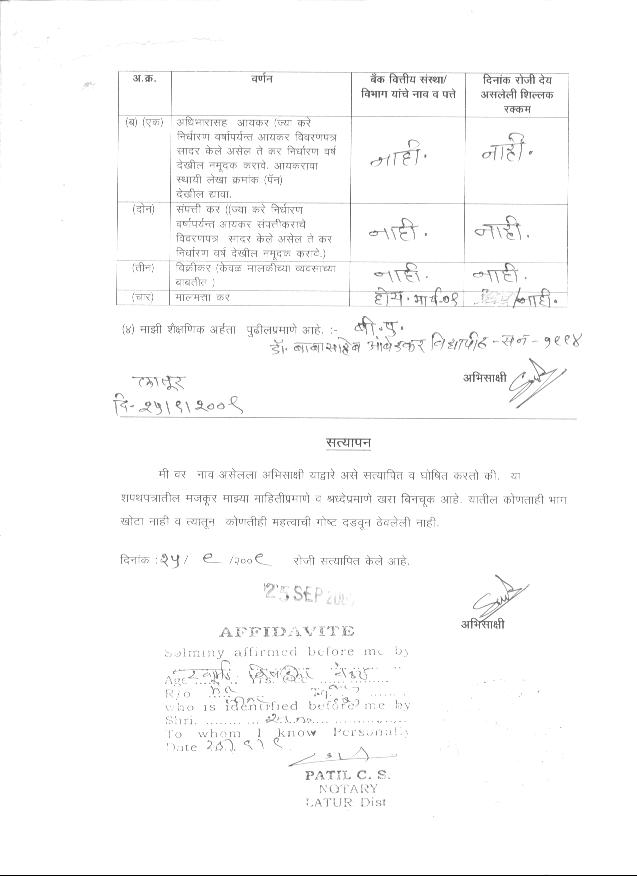 अ.क्र. वर्णन बँक वित्तीय संस्था/ दिनांक रोजी देय
विभाग यांचे नाव व पत्ते असलेली शिल्लक
रक्कम
(ब) (एक) अधिभारासह आयकर (ज्या करे
निर्धारण वर्षापर्यन्त आयकर विवरणपत्र
सादर केले असेल ते कर निर्धारण वर्ष
देखील नमूदक करावे. आयकरावा
स्थायी लेखा क्रमांक (पॅन)
देखील द्यावा.
नाही. नाही.
(दोन) संपत्ती कर ((ज्या करे निर्धारण
वर्षापर्यन्त आयकर संपत्तीकराचे
विवरणपत्र सादर केले असेल ते कर
निर्धारण वर्ष देखील नमूदक करावे.)
नाही. नाही.
(तीन) विक्रीकर (केवळ मालकीच्या व्यवसाच्या
बाबतीत ) नाही. नाही.
(चार) मालमत्ता कर होय. मार्च.०९ /नाही.
(४) माझी शैक्षणिक अर्हता पुढीलप्रमाणे आहे. :- बी.ए.
डॉ. बाबासाहेब आंबेडकर विद्यापीठ - सन - १९९४
लातूर अभिसाक्षी
दि- २५/९/२००९
सत्यापन
मी वर नाव असेलला अभिसाक्षी याद्वारे असे सत्यापित व घोषित करतो की. या
शपथपत्रातील मजकूर माझ्या माहितीप्रमाणे व श्रध्देप्रमाणे खरा बिनचूक आहे. यातील कोणताही भाग
खोटा नाही व त्यातून कोणतीही महत्वाची गोष्ट दडवून ठेवलेली नाही.
दिनांक :२५/ ९ /२००९ रोजी सत्यापित केले आहे.
25 SEP
अभिसाक्षी
AFFIDAVITE
Solminy affirmed before me by
Age
R/o
who is identified before me by
Shri.
To whom I know Personally
Date
PATIL C. S.
NOTARY
LATUR Dist